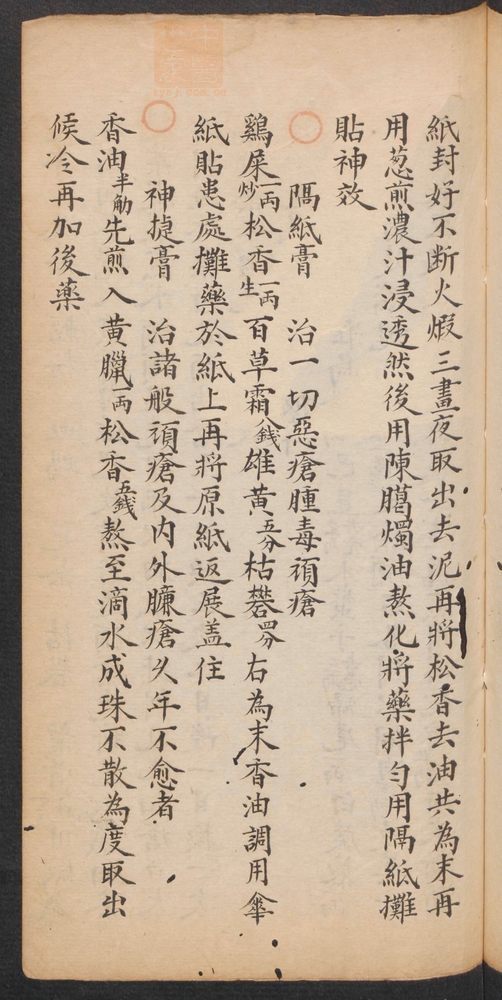 紙封好不断火煅三晝夜取出去泥再將松香去油共為末再
用葱煎濃汁浸透然後用陳臈燭油熬化將藥拌匀用隔紙攤
貼神效
隔紙膏 治一切惡瘡腫毒頑瘡
鷄屎一両炒松香一両生百草霜八錢雄黄五分枯礬四分右為末香油調用傘
紙貼患處攤藥於紙上再將原紙返展盖住
神㨗膏 治諸般頑瘡及内外臁瘡久年不愈者
香油半觔先煎入黄臘一両松香五錢熬至滴水成珠不散為度取出
候冷再加後藥